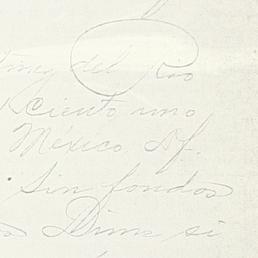 del Rio
Ciento uno
México, Df.
Sin fondos
Dime si